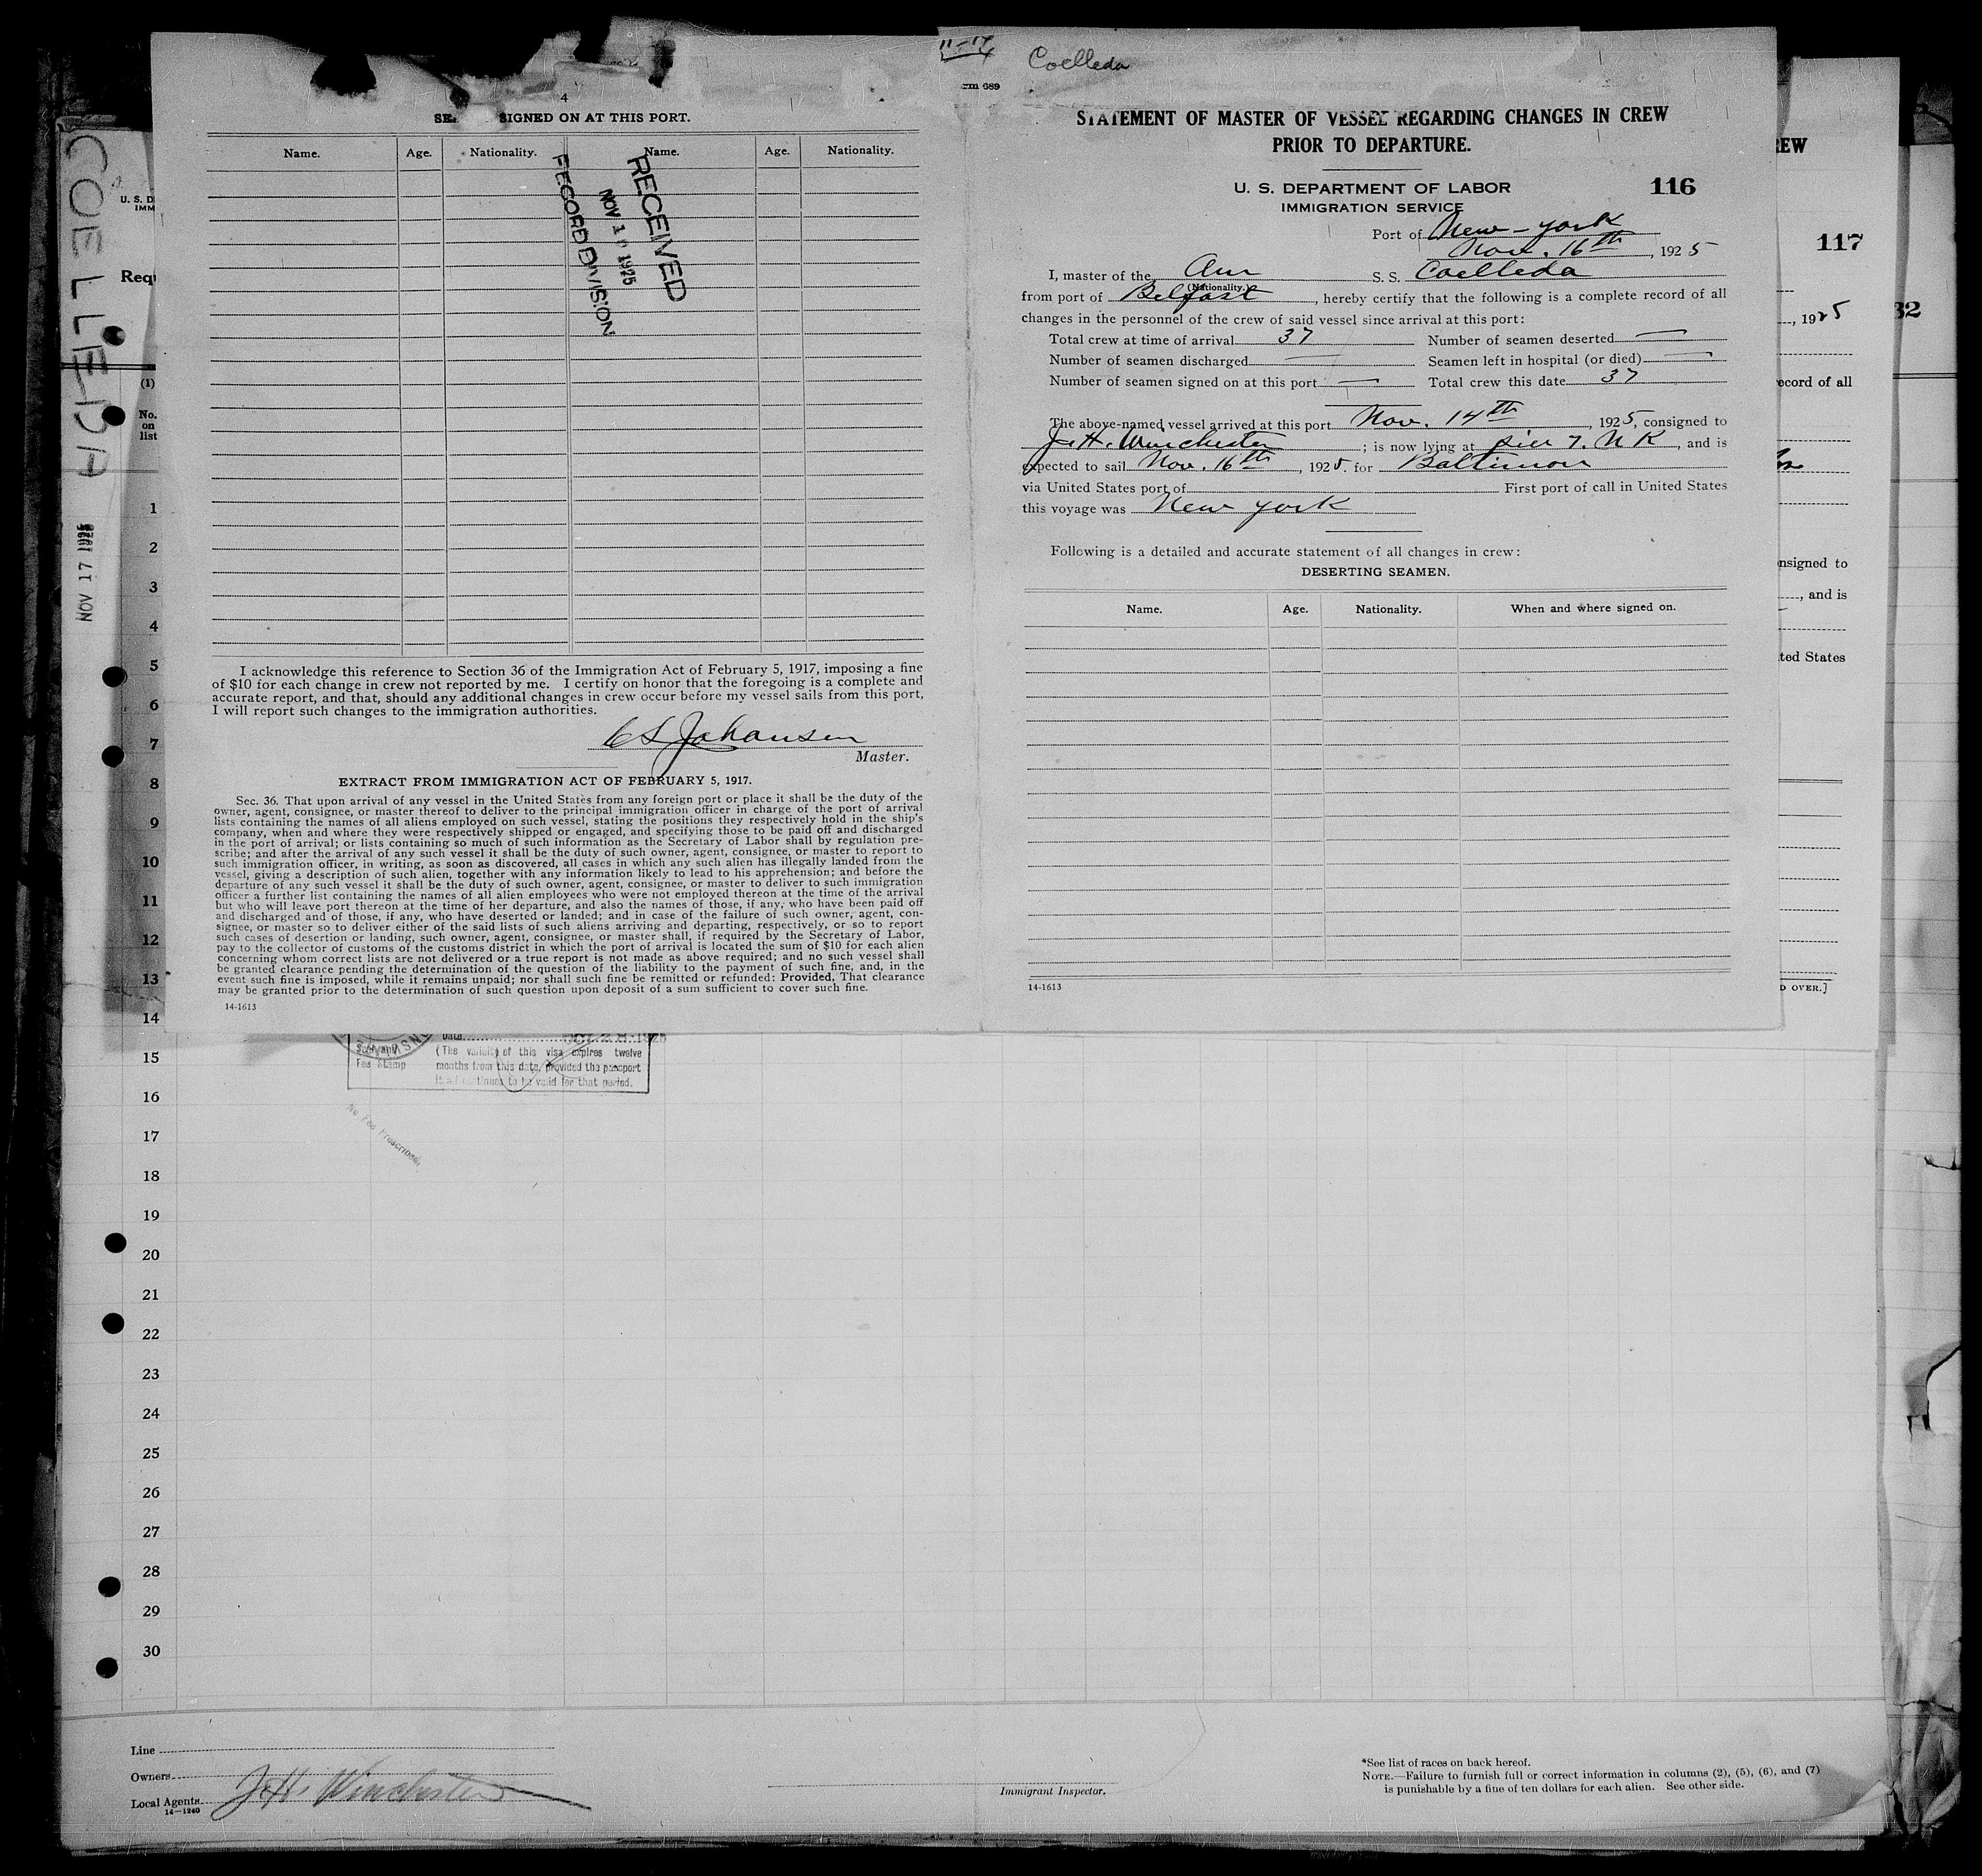 4
SIGNED ON AT THIS PORT.
Name. Age. Nationality. Name. Age. Nationality.
RECEIVED
NOV 1 1925
RECORD DIVISION
I acknowledge this reference to Section 36 of the Immigration Act of February 5, 1917, imposing a fine
of $10 for each change in crew not reported by me. I certify on honor that the foregoing is a complete and
accurate report, and that, should any additional changes in crew occur before my vessel sails from this port,
I will report such changes to the immigration authorities.
C S Johansen
Master.
EXTRACT FROM IMMIGRATION ACT OF FEBRUARY 5, 1917.
Sec. 36. That upon arrival of any vessel in the United States from any foreign port or place it shall be the duty of the
owner, agent, consignee, or master thereof to deliver to the principal immigration officer in charge of the port of arrival
lists containing the names of all aliens employed on such vessel, stating the positions they respectively hold in the ship's
company, when and where they were respectively shipped or engaged, and specifying those to be paid off and discharged
in the port of arrival; or lists containing so much of such information as the Secretary of Labor shall by regulation pre-
scribe; and after the arrival of any such vessel it shall be the duty of such owner, agent, consignee, or master to report to
such immigration officer, in writing, as soon as discovered, all cases in which any such alien has illegally landed from the
vessel, giving a description of such alien, together with any information likely to lead to his apprehension; and before the
departure of any such vessel it shall be the duty of such owner, agent, consignee, or master to deliver to such immigration
officer a further list containing the names of all alien employees who were not employed thereon at the time of the arrival
but who will leave port thereon at the time of her departure, and also the names of those, if any, who have been paid off
and discharged and of those, if any, who have deserted or landed; and in case of the failure of such owner, agent, con-
signee, or master so to deliver either of the said lists of such aliens arriving and departing, respectively, or so to report
such cases of desertion or landing, such owner, agent, consignee, or master shall, if required by the Secretary of Labor,
pay to the collector of customs of the customs district in which the port of arrival is located the sum of $10 for each alien
concerning whom correct lists are not delivered or a true report is not made as above required; and no such vessel shall
be granted clearance pending the determination of the question of the liability to the payment of such fine, and, in the
event such fine is imposed, while it remains unpaid; nor shall such fine be remitted or refunded: Provided, That clearance
may be granted prior to the determination of such question upon deposit of a sum sufficient to cover such fine.
14-1613
11-17
Coelleda
rm 689
STATEMENT OF MASTER OF VESSEL REGARDING CHANGES IN CREW
PRIOR TO DEPARTURE.
U. S. DEPARTMENT OF LABOR
116
IMMIGRATION SERVICE
Port of New-york
Nov. 16th, 1925
I, master of the Am S. S. Coelleda
(Nationality.)
from port of Belfast, hereby certify that the following is a complete record of all
changes in the personnel of the crew of said vessel since arrival at this port:
Total crew at time of arrival 37 Number of seamen deserted —
Number of seamen discharged — Seamen left in hospital (or died) —
Number of seamen signed on at this port — Total crew this date 37
The above-named vessel arrived at this port Nov. 14th, 1925, consigned to
J. H. Winchester; is now lying at pier 7. N K, and is
expected to sail Nov. 16th, 1925. for Baltimore
via United States port of First port of call in United States
this voyage was New york
Following is a detailed and accurate statement of all changes in crew:
DESERTING SEAMEN.
Name. Age. Nationality. When and where signed on.
14-1613
COELLEDA
NOV 17 1925
U. S. D
IMM
Requ
(1)
No.
on
list
1
2
3
4
5
6
7
8
9
10
11
12
13
14
15
16
17
18
19
20
21
22
23
24
25
26
27
28
29
30
REW
117
, 1925
32
ecord of all
nsigned to
, and is
ted States
D OVER.]
Date
Fee Stamp
(The validity of this visa expires twelve
months from this date, provided the passport
continues to be valid for that period.
No Fee Prescribed.
Line
Owners
Local Agents J. H. Winchester
14-1240
Immigrant Inspector.
*See list of races on back hereof.
NOTE.—Failure to furnish full or correct information in columns (2), (5), (6), and (7)
is punishable by a fine of ten dollars for each alien. See other side.